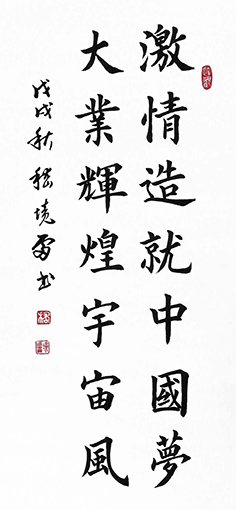 激情造就中國夢
大業輝煌宇宙風
戊戌秋 境雷书